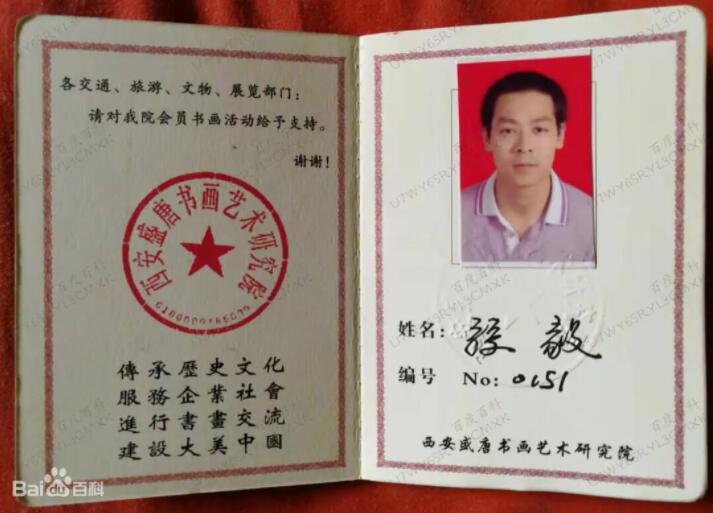 各交通、旅游、文物、展览部门：
请对我院会员书画活动给予支持。
谢谢！
西安盛唐书画艺术研究院
傳承歷史文化
服務企業社會
進行書畫交流
建設大美中國
姓名：
毅
编号 No: 0151
西安盛唐书画艺术研究院
Bai百科
百度百科
U7WY6SRYL3CMXK